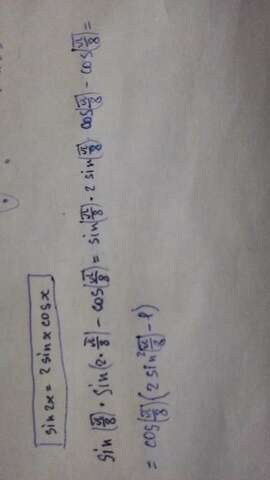 sin 2x = 2 sin x cos x
sin(π/8) · sin(2 · π/8) - cos(π/8) = sin(π/8) · 2 sin(π/8) cos(π/8) - cos(π/8) =
= cos(π/8)(2 sin² π/8 - 1)